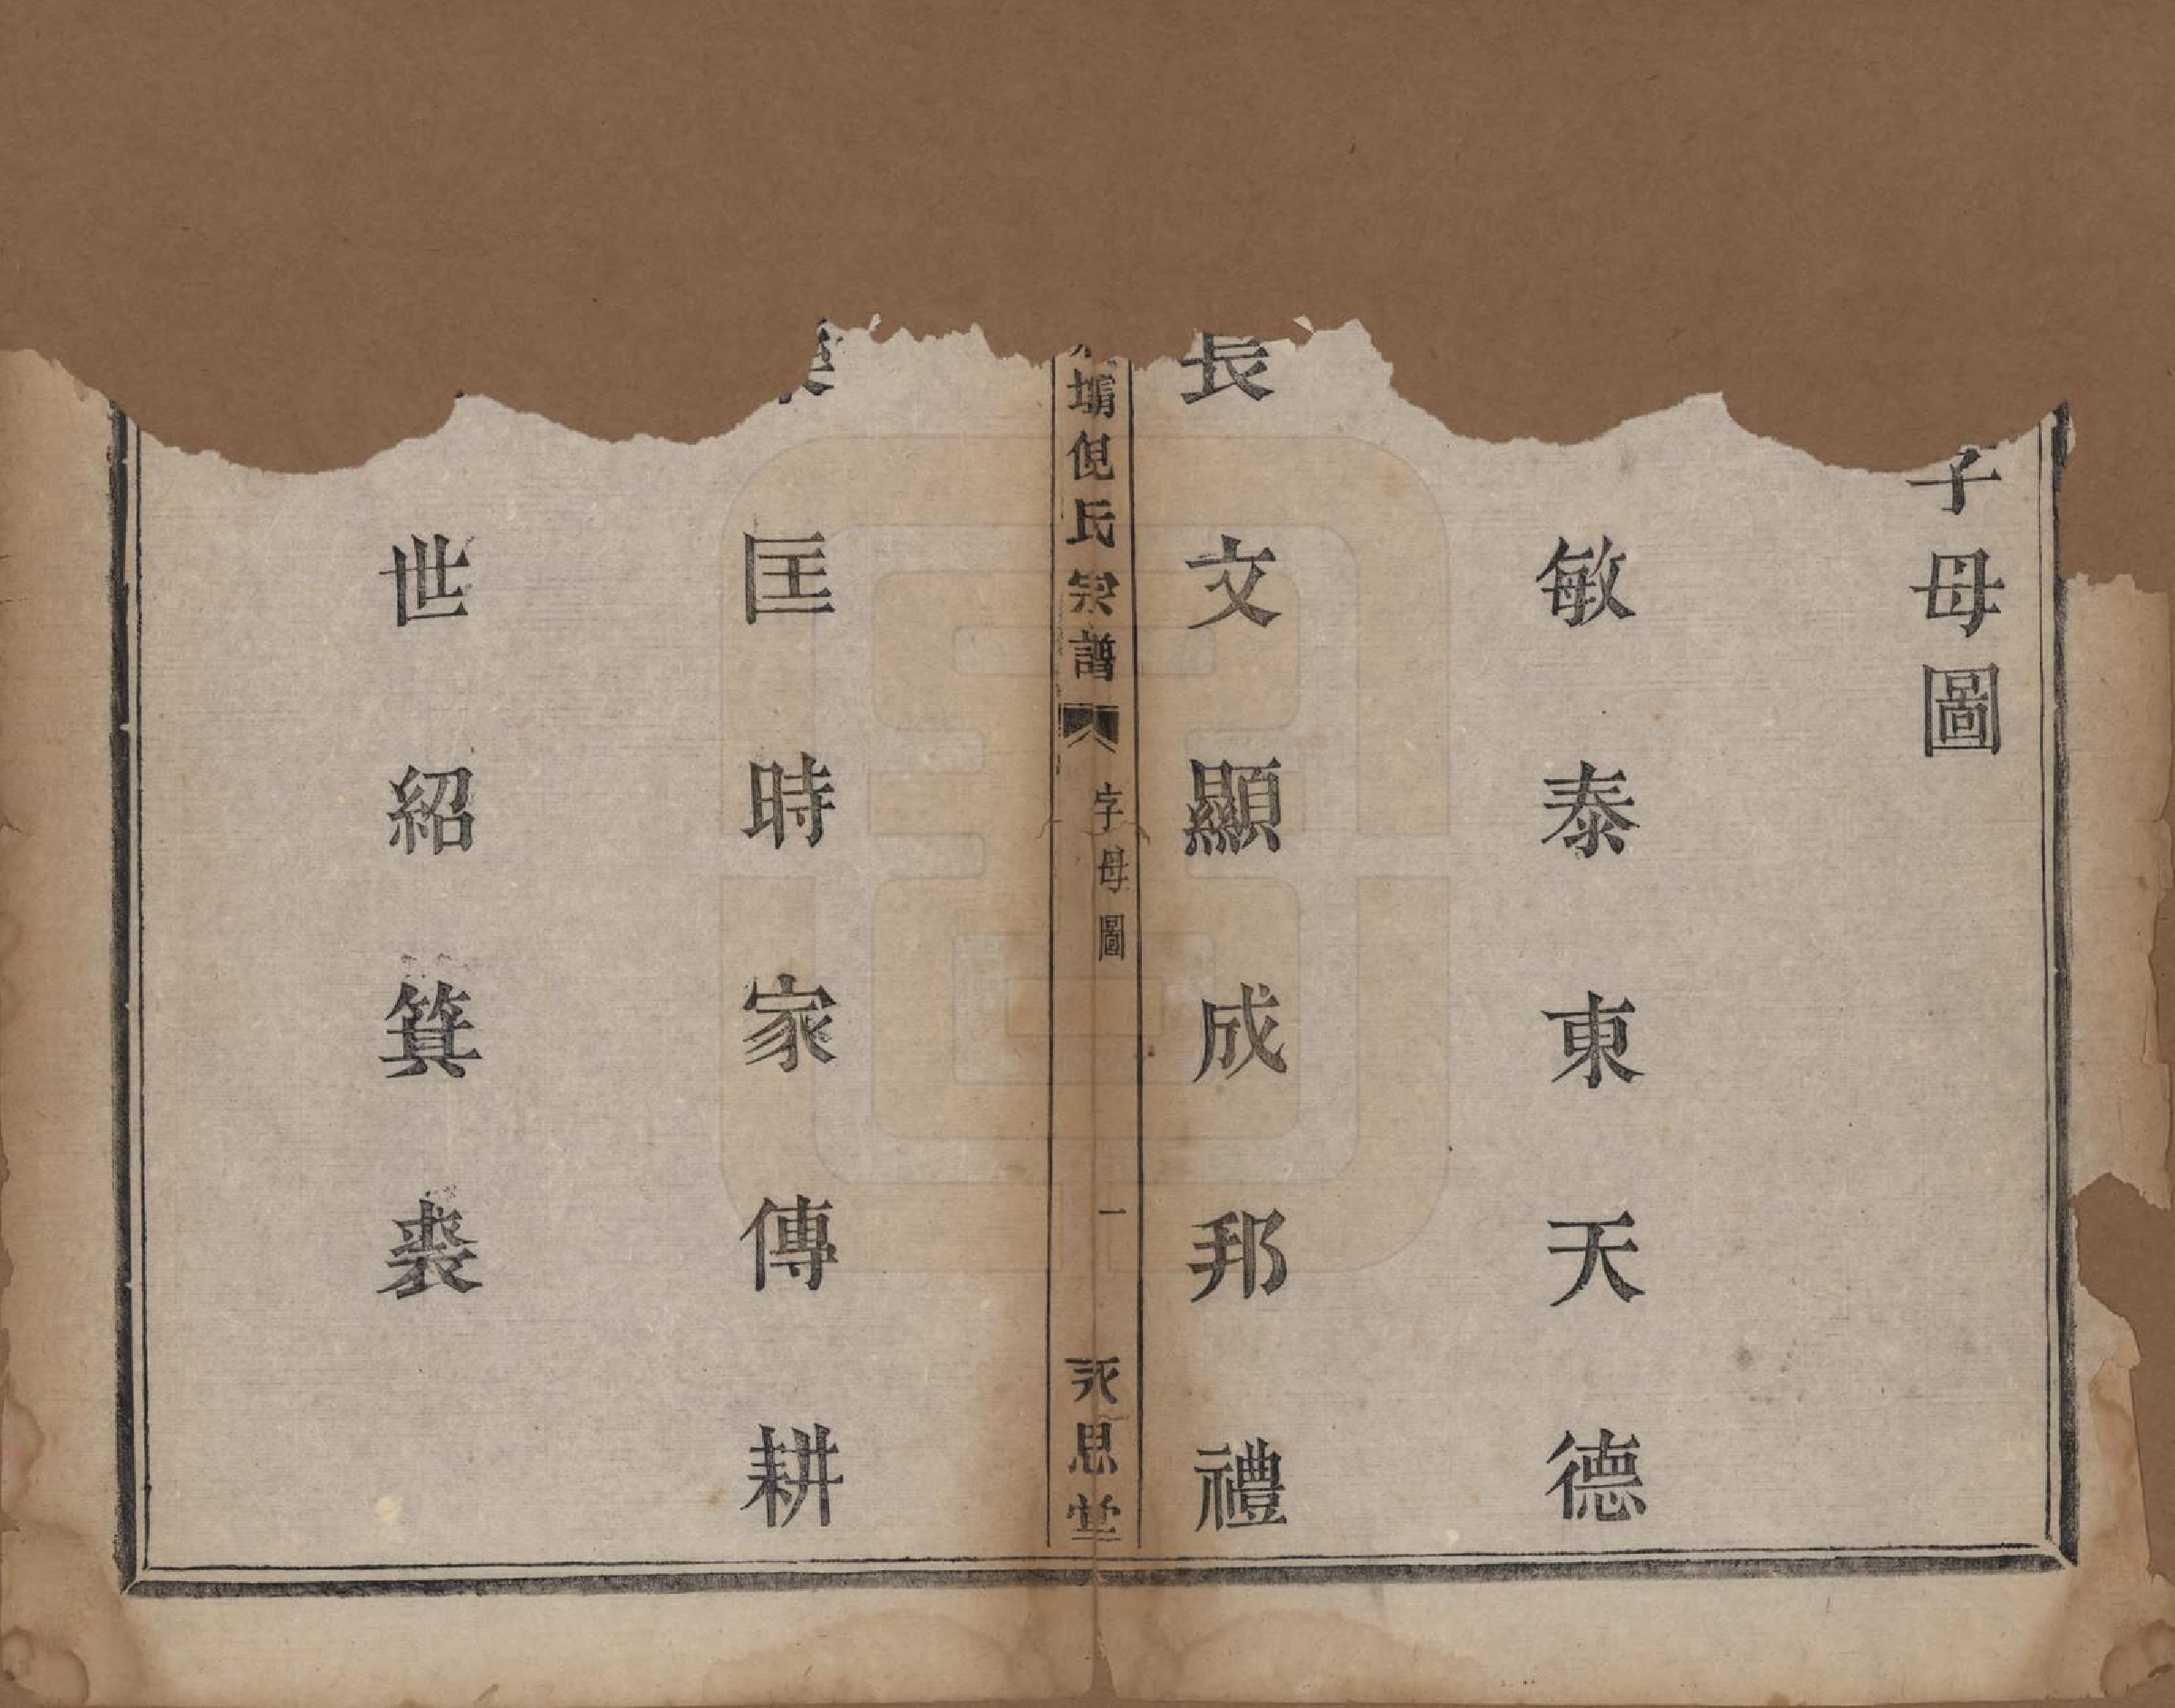 字母圖
敏泰東天德
長文顯成邦禮
壩倪氏宗譜 字母圖 一 永思堂
匡時家傳耕
世紹箕裘